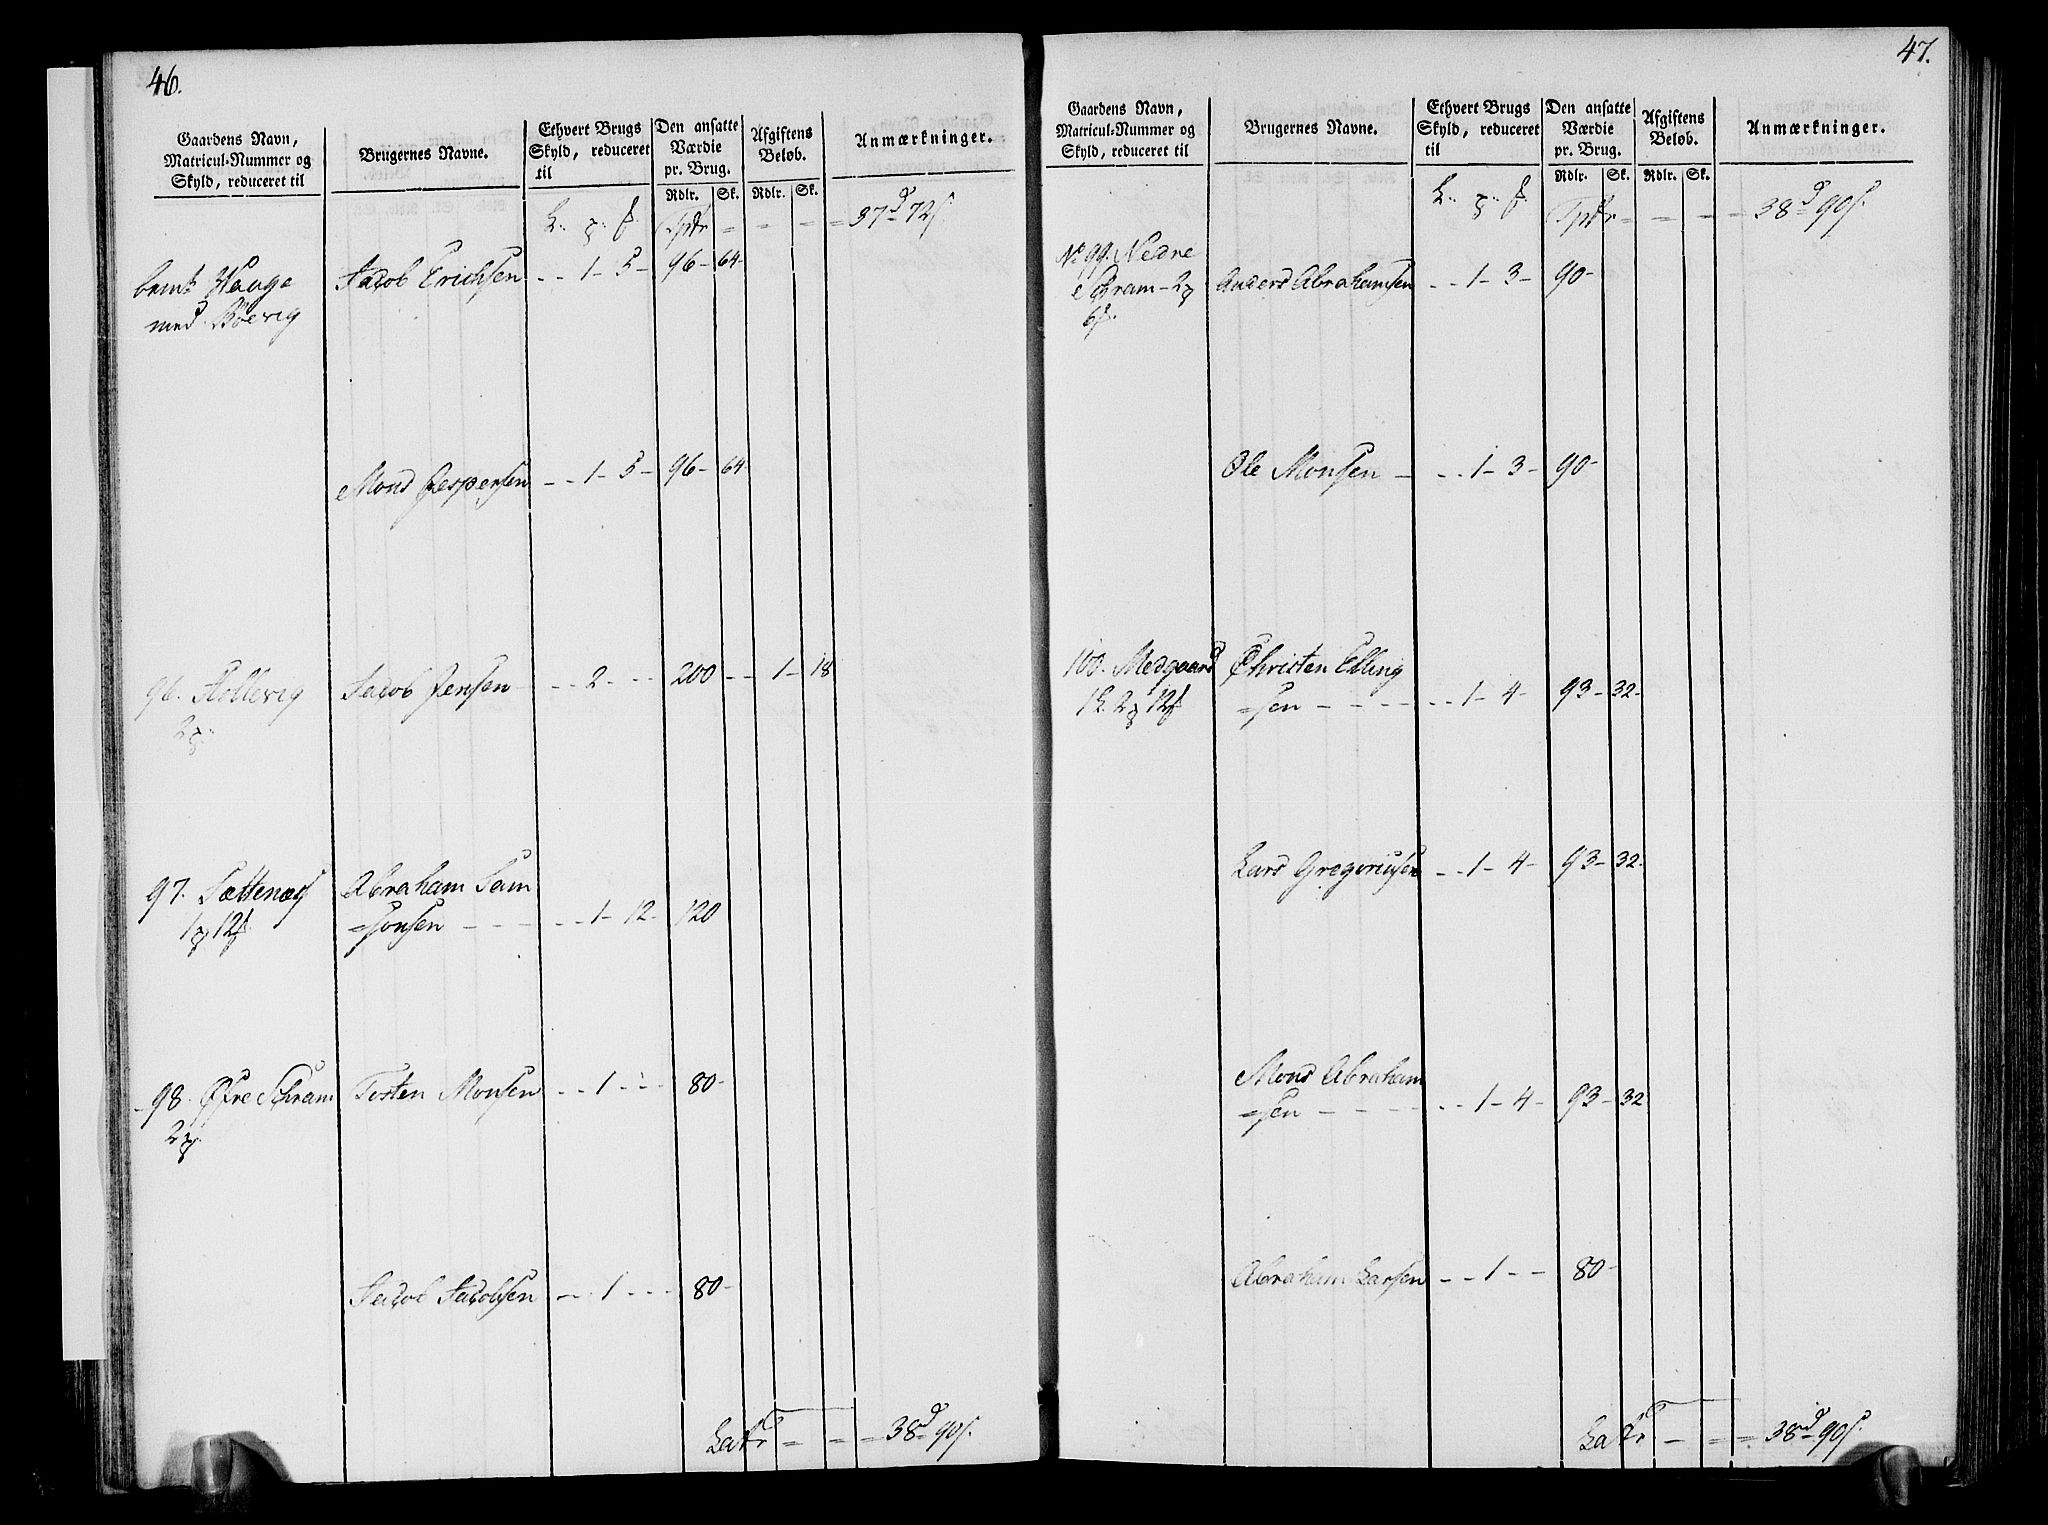 46.
Gaardens Navn,
Matricul-Nummer og
Skyld, reduceret til
Brugernes Navne.
Ethvert Brugs
Skyld, reduceret
til
Den ansatte
Værdie
pr. Brug.
Rdlr. Sk.
Afgiftens
Beløb.
Rdlr. Sk.
Anmærkninger.
Tptr = - - = 37 d 72 s.
bemt Waage Jacob Erichsen - - 1 - 5 - 96 - 64 -
med Böevig
Mons Jespersen - - 1 - 5 - 96 - 64 -
96. Jacob Jensen - - - 2 - - - 200 - - 1 - 18
2
97. Sættenæs Abraham Sam
=sonsen - - - - - 1 - 12 - 120
98. Øfre Schram Tosten Monsen - - 1 - - - 80 -
2
Jacob Jacobsen - - - 1 - - - 80 -
Latr = = = 38 d 90 s.
47.
Gaardens Navn,
Matricul-Nummer og
Skyld, reduceret til
Brugernes Navne.
Ethvert Brugs
Skyld, reduceret
til
Den ansatte
Værdie
pr. Brug.
Rdlr. Sk.
Afgiftens
Beløb.
Rdlr. Sk.
Anmærkninger.
Tptr = - - - 38 d 90 s.
No 99. Nedre
Anders Abrahamsen - - 1 - 3 - 90 -
Ole Monsen - - - 1 - 3 - 90 -
100. Medgaard Christen Elling
=sen - - - - - - 1 - 4 - 93 - 32 -
Lars Gregoriusen - - 1 - 4 - 93 - 32 -
Mons Abraham
=sen - - - - - - 1 - 4 - 93 - 32
Abraham Larsen - - 1 - - 80 -
Latr - = = 38 d 90 s.